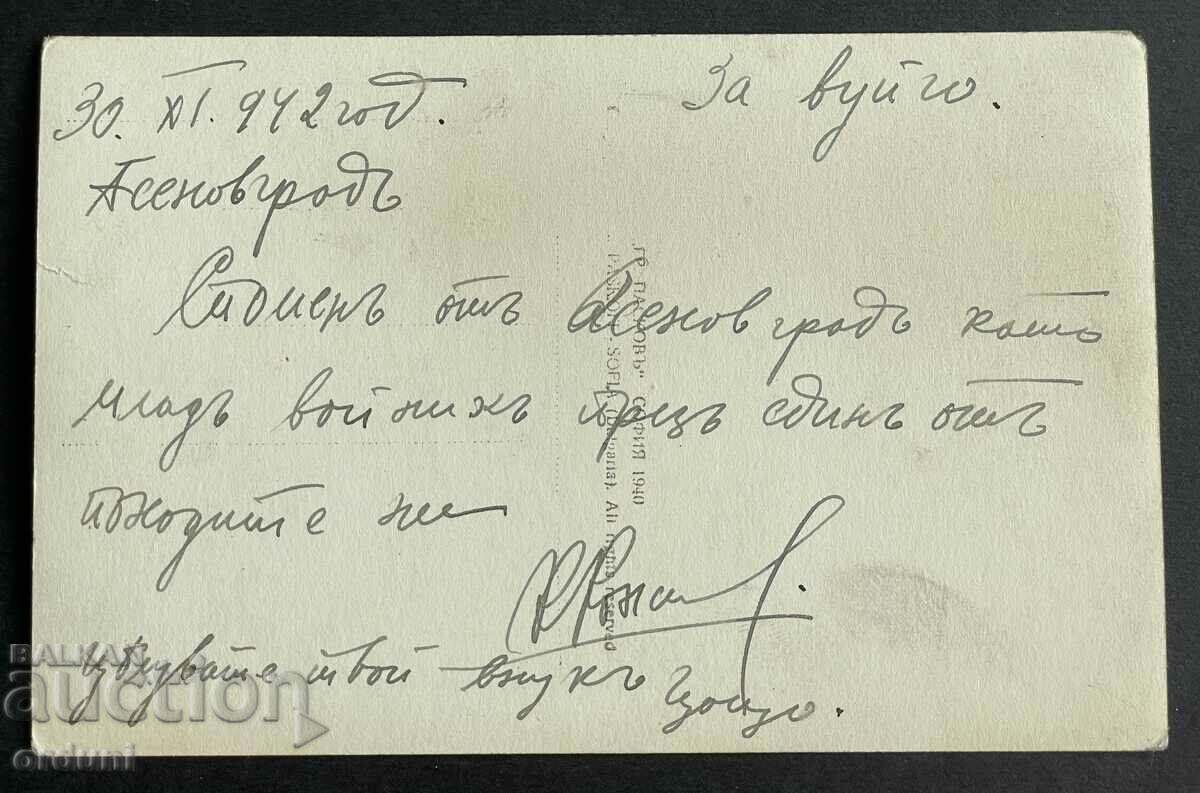 За вуйчо.
30. XI. 942 год.
Асеновградъ
Спомень отъ Асеновградъ като
младъ войникъ прezъ единъ отъ
походите ни
цѣлувате твой внукъ Цоцо.
ГР. ПАСКОВЪ" СОФИЯ 1940
PASKOV" SOFIA (Bulgaria). All rights reserved
BALKAN
auction
orduni